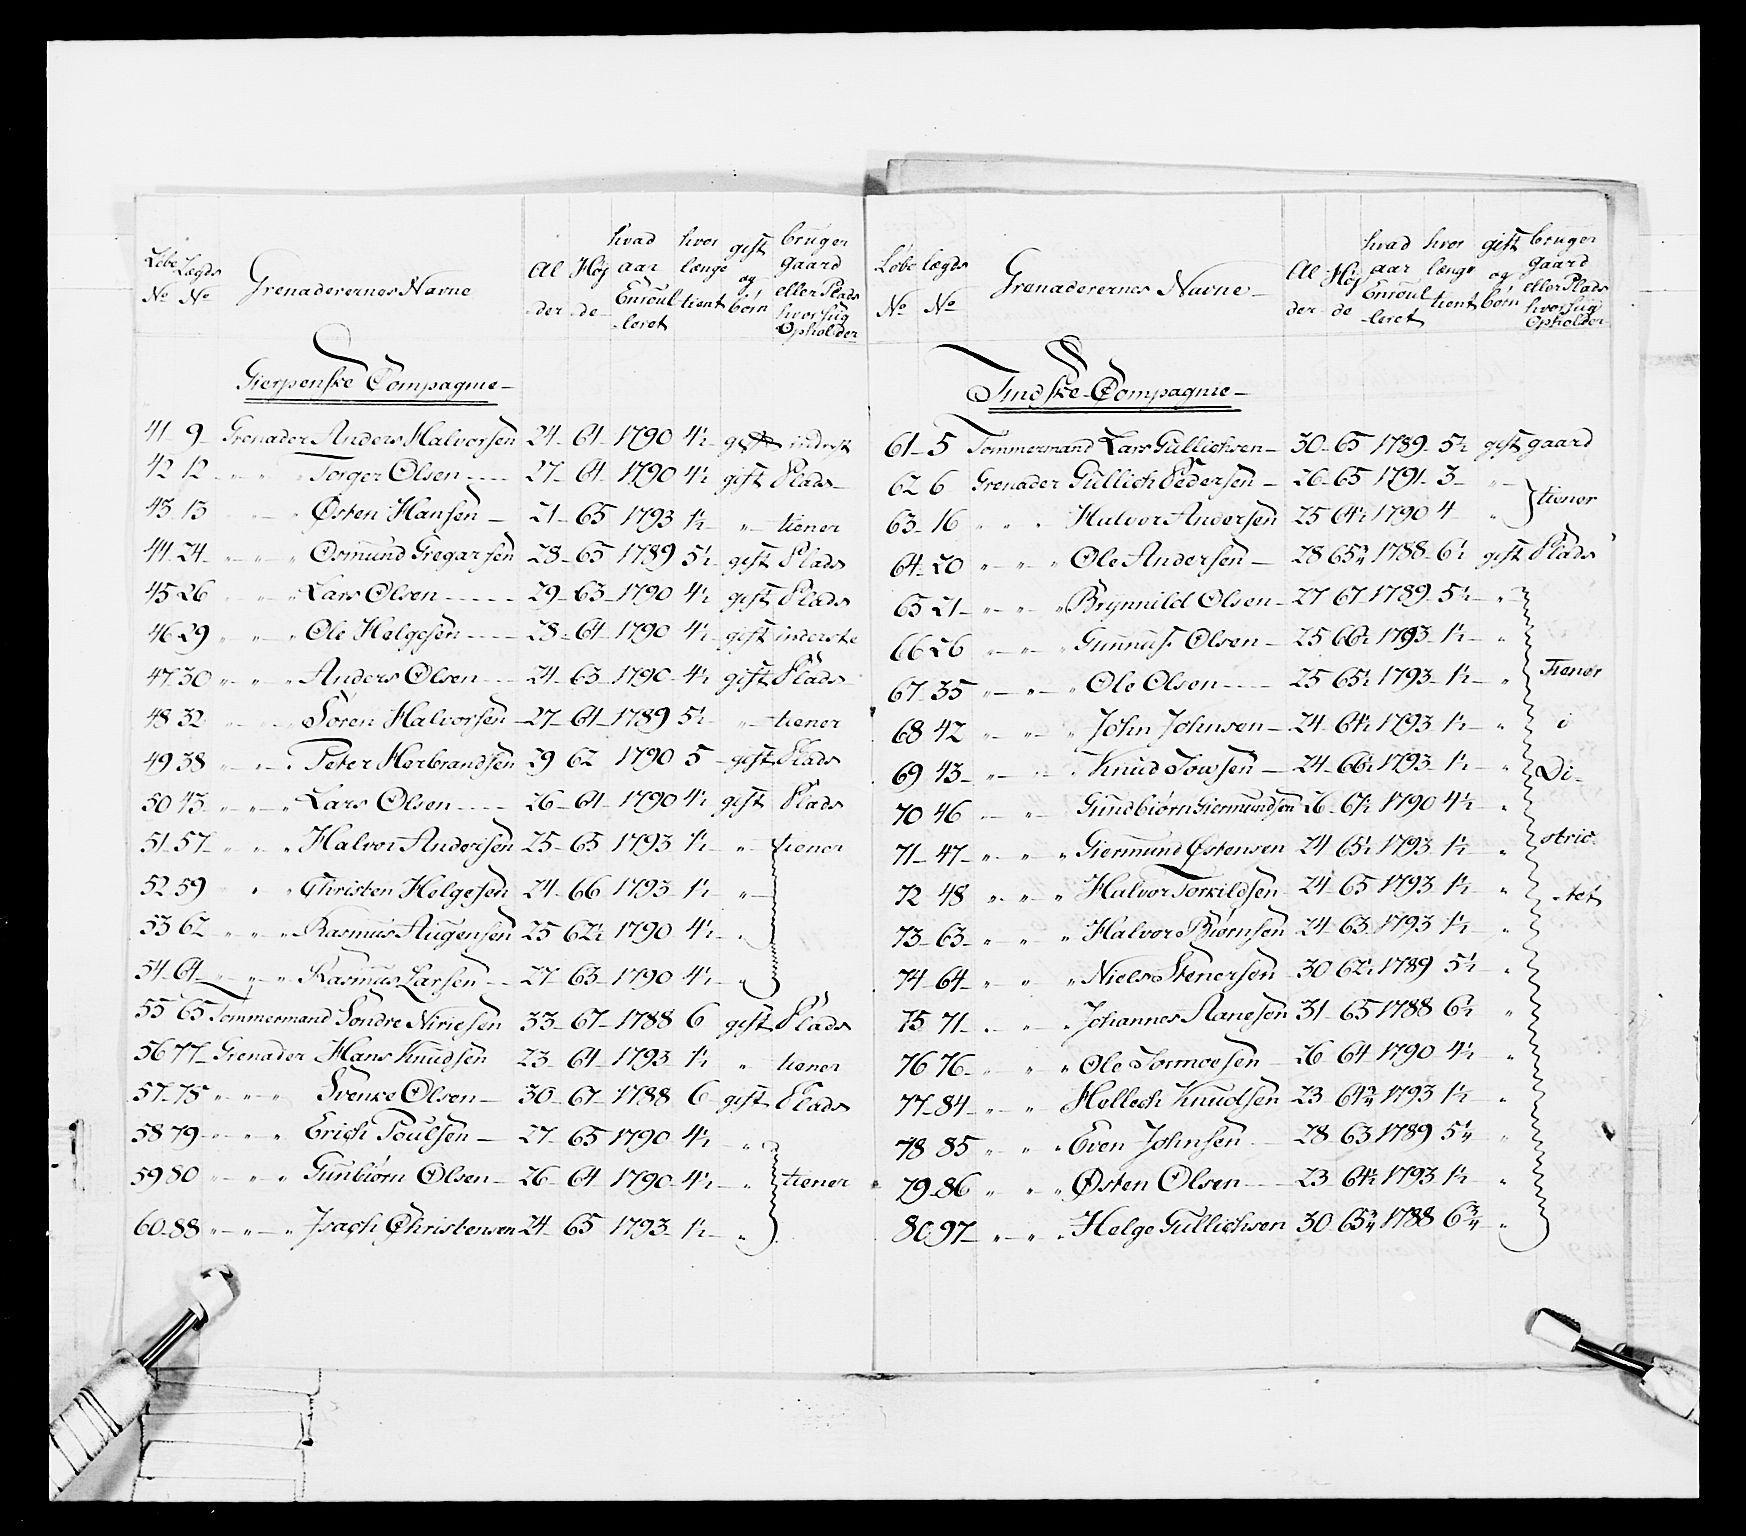 Løbe No Lægds No Grenaderernes Navne Al der Høj de hvad aar Enroulleret hvor længe tient gift og børn bruger gaard eller Plads hvor sig Opholder
Gierpenske Compagnie
41 9 Grenader Anders Halvorsen 24 64 1790 4½ gift inderst
42 12 " " " Torger Olsen 27 64 1790 4½ gift Plads
43 13 " " " Østen Hansen 21 65 1793 1½ " tiener
44 24 " " " Osmund Gregarsen 28 65 1789 5½ gift Plads
45 26 " " " Lars Olsen 29 63 1790 4½ gift Plads
46 29 " " " Ole Helgesen 28 64 1790 4½ gift inderste
47 30 " " " Anders Olsen 24 63 1790 4½ gift Plads
48 32 " " " Søren Halvorsen 27 64 1789 5½ " tiener
49 38 " " " Peter Herbrandsen 29 62 1790 5 gift Plads
50 43 " " " Lars Olsen 26 64 1790 4½ gift Plads
51 57 " " " Halvor Andersen 25 65 1793 1½ " tiener
52 59 " " " Christen Helgesen 24 66 1793 1½ "
53 62 " " " Rasmus Augensen 25 62½ 1790 4½ "
54 64 " " " Rasmus Larsen 27 63 1790 4½ "
55 65 Tømmermand Søndre Niriesen 33 67 1788 6 gift Plads
56 77 Grenader Hans Knudsen 23 64 1793 1½ " tiener
57 78 " " " Svenke Olsen 30 67 1788 6 gift Plads
58 79 " " " Erich Poulsen 27 65 1790 4½ "
59 80 " " " Gunbiørn Olsen 26 64 1790 4½ " tiener
60 88 " " " Isach Christensen 24 65 1793 1½ "
Løbe No lægds No Grenaderernes Navne Al der Høj de hvad aar Enroulleret hvor længe tient gift og børn bruger gaard eller Plads hvor sig Opholder
Tindske Compagnie
61 5 Tømmermand Lars Gullichsen 30 65 1789 5½ gift gaard
62 6 Grenader Gullich Pedersen 26 65 1791 3 "
63 16 " " " Halvor Andersen 25 64½ 1790 4 " tiener
64 20 " " " Ole Andersen 28 65¾ 1788 6½ gift Plads
65 21 " " " Brynnild Olsen 27 67 1789 5½ "
66 26 " " " Gunnuf Olsen 25 66½ 1793 1½ "
67 35 " " " Ole Olsen 25 65½ 1793 1½ " Tiener
68 42 " " " John Johnsen 24 64½ 1793 1½ " i
69 43 " " " Knud Towsen 24 66½ 1793 1½ " Di-
70 46 " " " Gundbiørn Giermundsen 26 67½ 1790 4½ "
71 47 " " " Giermund Østensen 24 65½ 1793 1½ " stric-
72 48 " " " Halvor Torkildsen 24 65 1793 1½ " tet
73 63 " " " Halvor Biørnsen 24 63 1793 1½ "
74 64 " " " Niels Stenersen 30 62½ 1789 5½ "
75 71 " " " Johannes Aanesen 31 65 1788 6½ "
76 76 " " " Ole Tormoesen 26 64 1790 4½ "
77 84 " " " Hellech Knudsen 23 64¾ 1793 1½ "
78 85 " " " Even Johnsen 28 63 1789 5¼ "
79 86 " " " Østen Olsen 23 64½ 1793 1½ "
80 97 " " " Helge Gullichsen 30 65¾ 1788 6¾ "